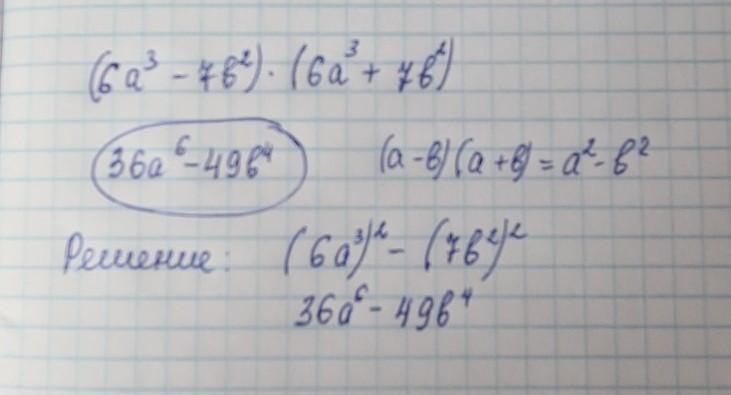 (6a³ - 7в²) · (6a³ + 7в²)
36a⁶ - 49в⁴ (a - в)(a + в) = a² - в²
Решение: (6a³)² - (7в²)²
36a⁶ - 49в⁴